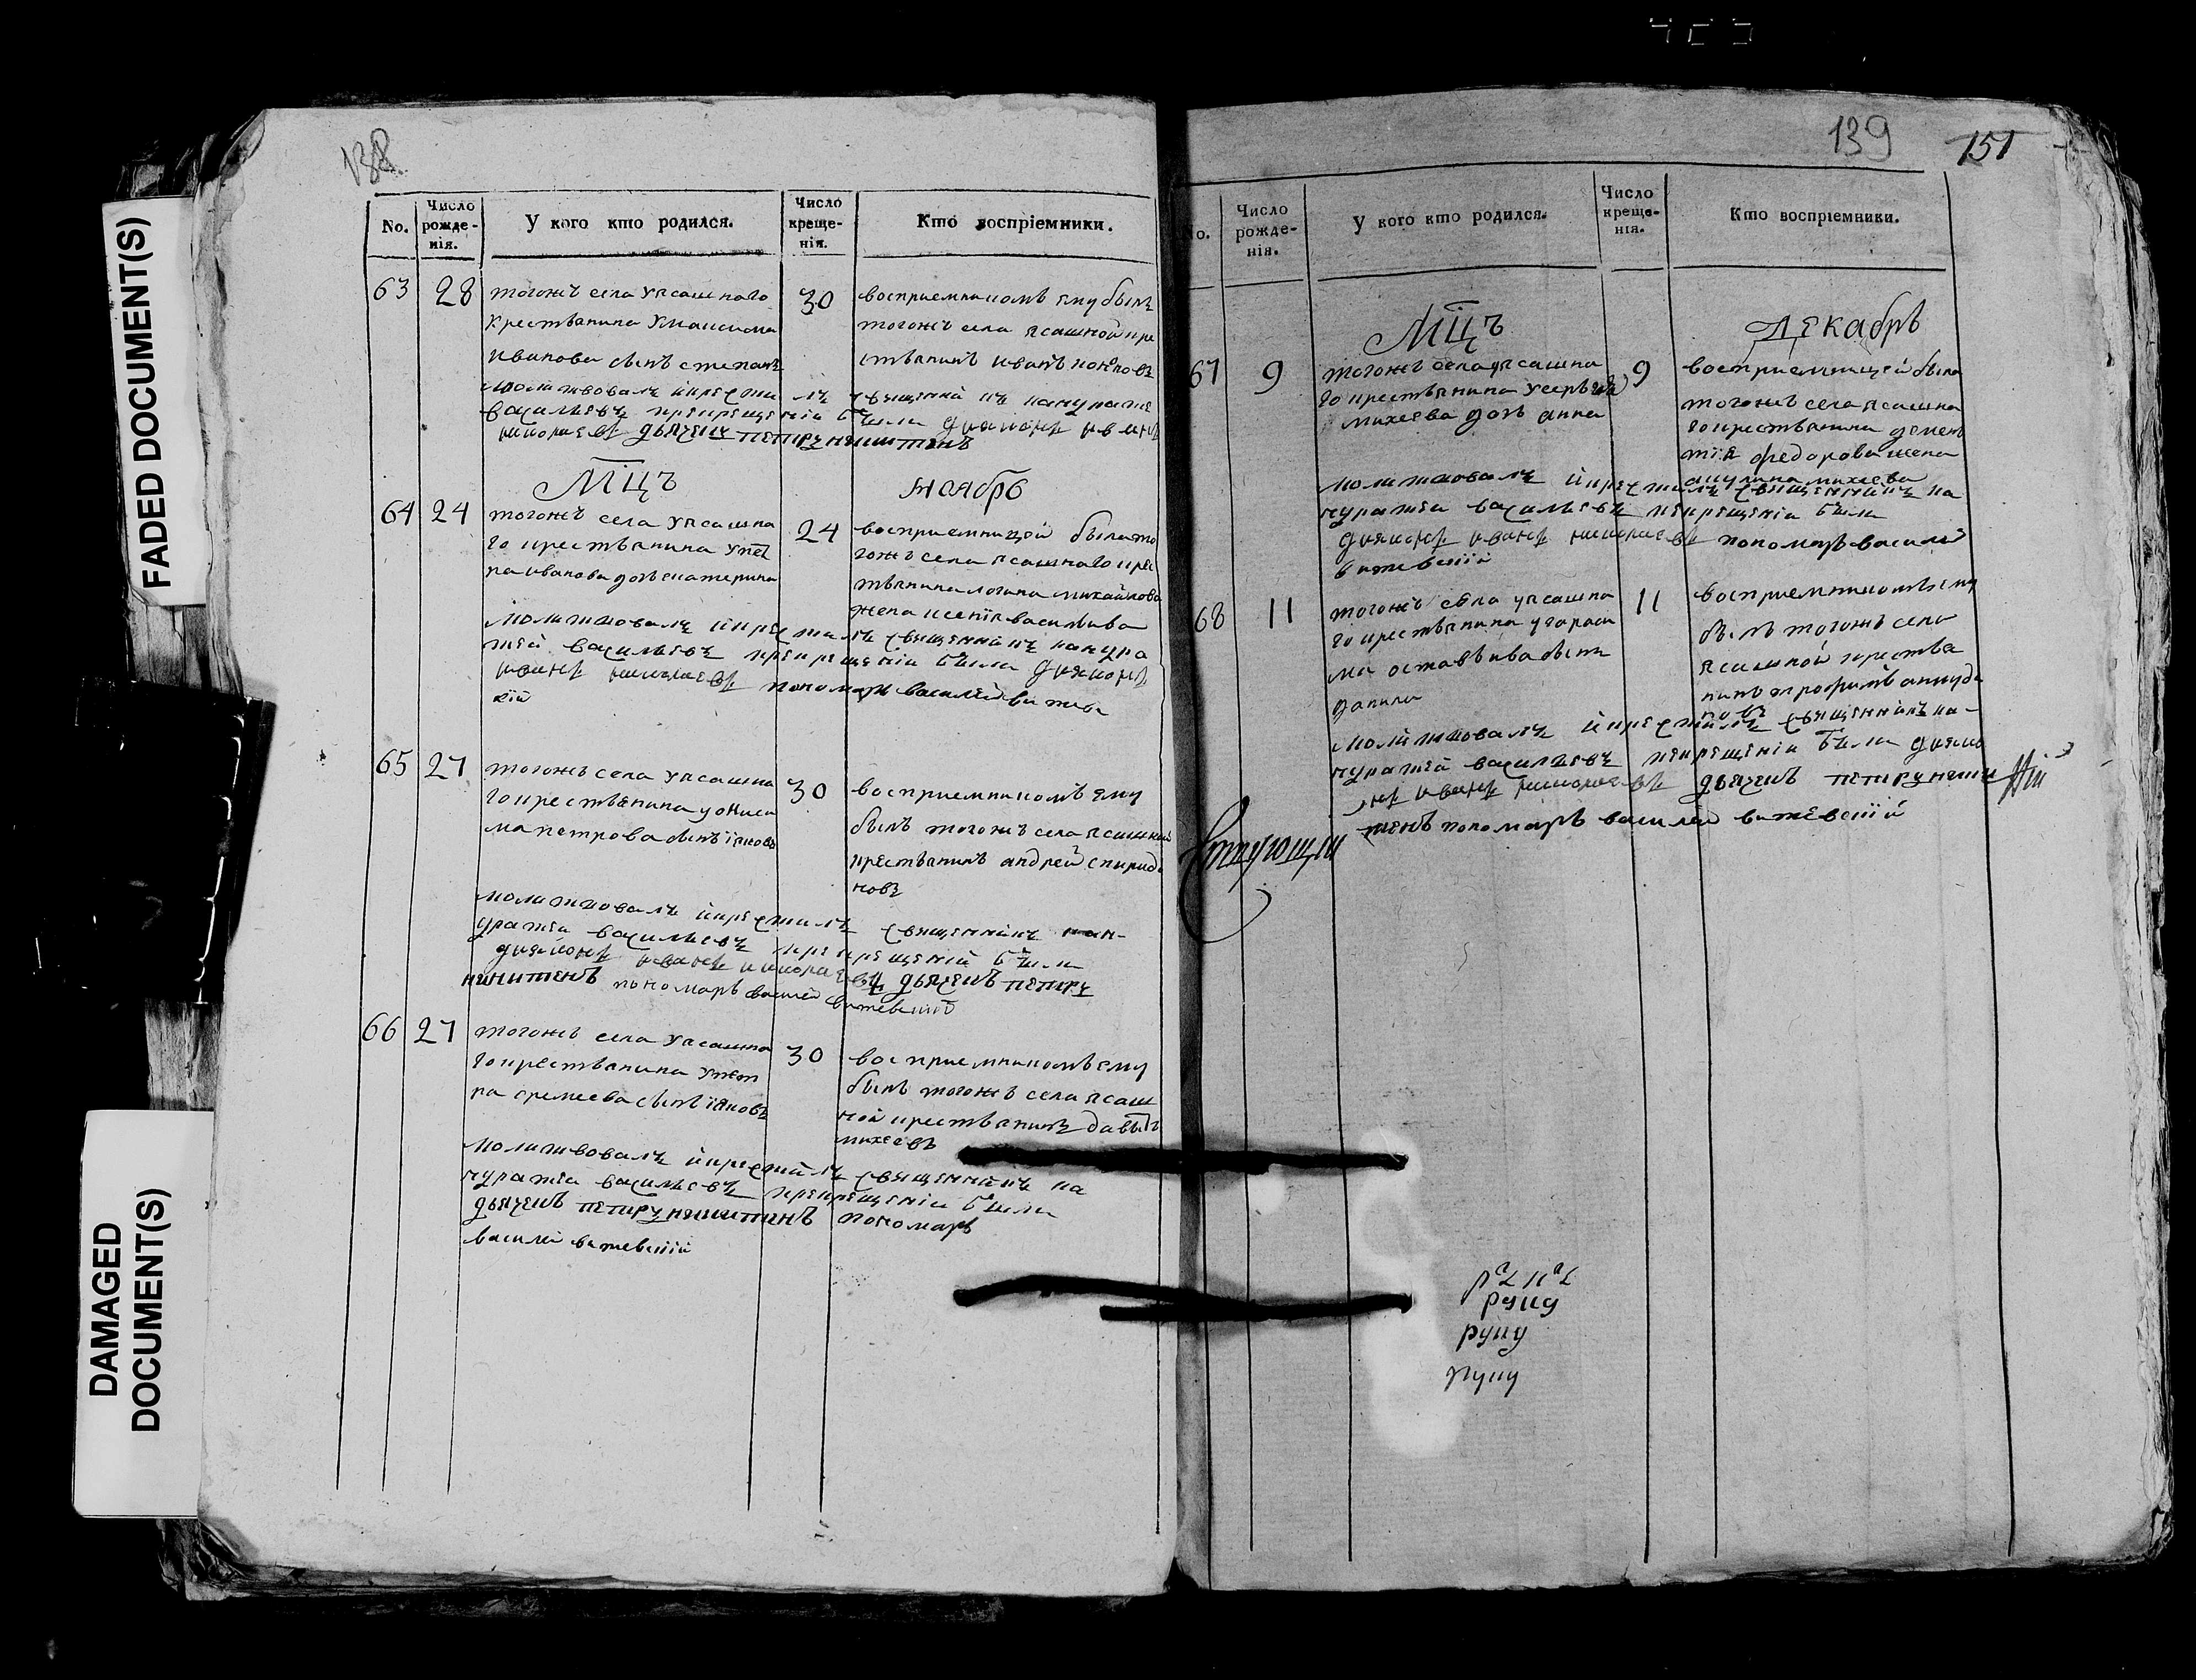 FADED DOCUMENT(S)
DAMAGED
DOCUMENT(S)
138
No.
Число
рожде-
нія.
У кого кто родился.
Число
креще-
нія.
Кто воспріемники.
63
28
тогожъ села уясашнаго
крестьянина Умаксима
Иванова сынъ степанъ
30
восприемникомъ ему былъ
тогожъ села ясашной кре
стьянинъ иванъ
МЦЪ
Ноябрь
64
24
тогожъ села уясашна
го крестьянина упет
ра иванова дочь екатерина
24
восприемницей была то
гожъ села ясашнаго крес
тьянина логина михайлова
жена ксения васильева
молитвовалъ и крестилъ священникъ кандра
тей васильевъ прикрещении были диаконъ
иванъ пономарь василей витевс
кій
65
27
тогожъ села уясашна
го крестьянина уониси
ма петрова сынъ іяковъ
30
восприемникомъ ему
былъ тогожъ села ясашной
крестьянинъ андрей спиридо
новъ
молитвовалъ и крестилъ священникъ кан-
дратей васильевъ прикрещении были
диаконъ иванъ дьячекъ петръ
никитинъ пономарь василей витевский
66
27
тогожъ села уясашна
го крестьянина упет
ра еремеева сынъ іяковъ
30
восприемникомъ ему
былъ тогожъ села ясаш
ной крестьянинъ давыдъ
михеевъ
молитвовалъ и крестилъ священникъ ка
ндратей васильевъ прикрещении были
дьячекъ петръ никитинъ пономарь
василей витевский
139
151
о.
Число
рожде-
нія.
У кого кто родился.
Число
креще-
нія.
Кто воспріемники.
МЦЪ
Декабрь
67
9
тогожъ села уясашна
го крестьянина усергея
михеева дочь анна
9
восприемницей была
тогожъ села ясашна
го крестьянина демен
тія федорова жена
акулина михеева
молитвовалъ и крестилъ священникъ ка
ндратей васильевъ прикрещении были
диаконъ иванъ пономарь василей
витевский
68
11
тогожъ села уясашна
го крестьянина угараси
ма остафьива сынъ
данила
11
восприемникомъ ему
былъ тогожъ села
ясашной крестья
нинъ трофимъ анкуди
новъ
молитвовалъ и крестилъ священникъ ка-
ндратей васильевъ прикрещении были диако
нъ иванъ дьячекъ петръ ники
тинъ пономарь василей витевский
руку
руку
руку